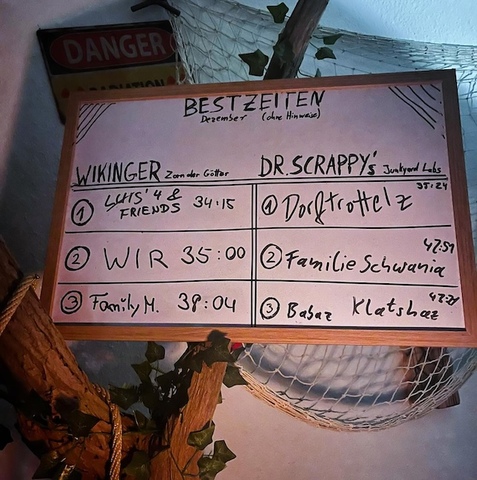 DANGER
RADIATION
BESTZEITEN
Dezember (ohne Hinweise)
WIKINGER Zorn der Götter
① LUIS' 4 &
FRIENDS 34:15
② WIR 35:00
③ Family M. 38:04
DR. SCRAPPY's Junkyard Labs
35:24
① Dorftrottelz
42:51
② Familie Schwania
③ Babaz Klatshaz